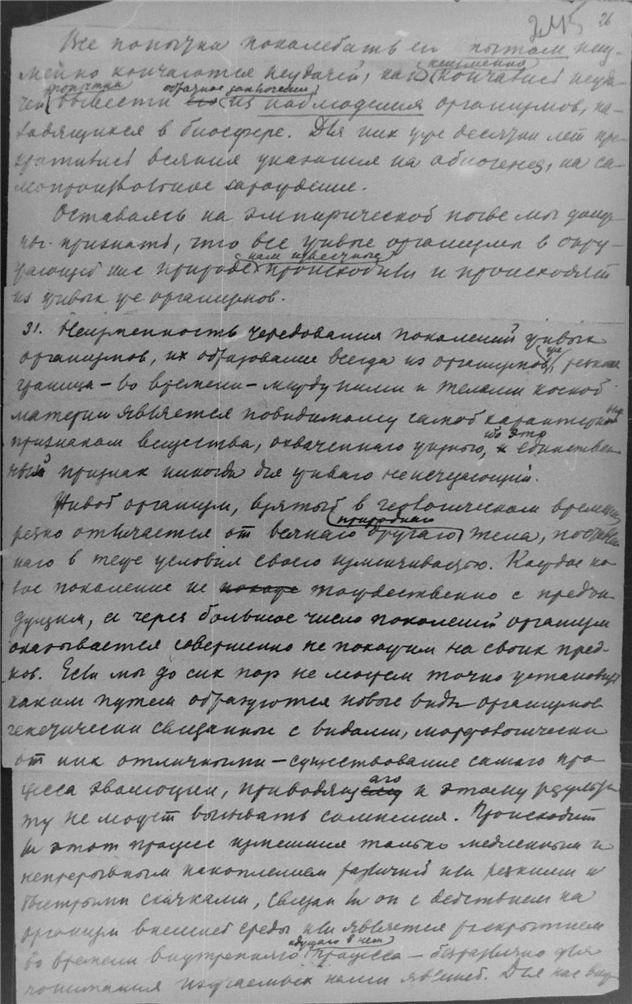 26
Все попытки поколебать его опытом неиз-
мейно кончаются неудачей, как неизменно кончались неуда-
чей попытки вывести обратное заключение из наблюдения организмов, на-
ходящихся в биосфере. Для них уже десятки лет пре-
кратились всякие указания на абиогенез, на са-
мопроизвольное зарождение.
Оставаясь на эмпирической почве мы долж-
ны признать, что все живые организмы в окру-
жающей нас природе нам известные происходили и происходят
из живых же организмов.
31. Неизменность чередования поколений живых
организмов, их образование всегда из организмов же, резкая
граница – во времени – между ними и телами косной
материи является повидимому самой характерной
признаком вещества, охваченного жизнью, ибо это единствен-
ный признак никогда для живого неисчезающий.
Живой организм, взятый в геологическом времени
резко отличается от всякаго другаго природнаго тела, поставлен
наго в теже условия своего изменчивостью. Каждое но-
вое поколение не тождественно с предъи-
дущим, и через большое число поколений организм
оказывается совершенно не похожим на своих пред-
ков. Если мы до сих пор не можем точно установить
каким путем образуются новые виды организмов
генетически связанные с видами, морфологически
от них отличными – существование самого про-
цесса эволюции, приводящаго к этому результа-
ту не может вызывать сомнения. Происходит
ли этот процесс изменения только медленным и
непрерывным накоплением различий или резкими и
быстрыми скачками, связан ли он с действием на
организм внешней среды или является раскрытием
во времени внутреннего идущаго в нем процесса – безразлично для
понимания изучаемых нами явлений. Для нас